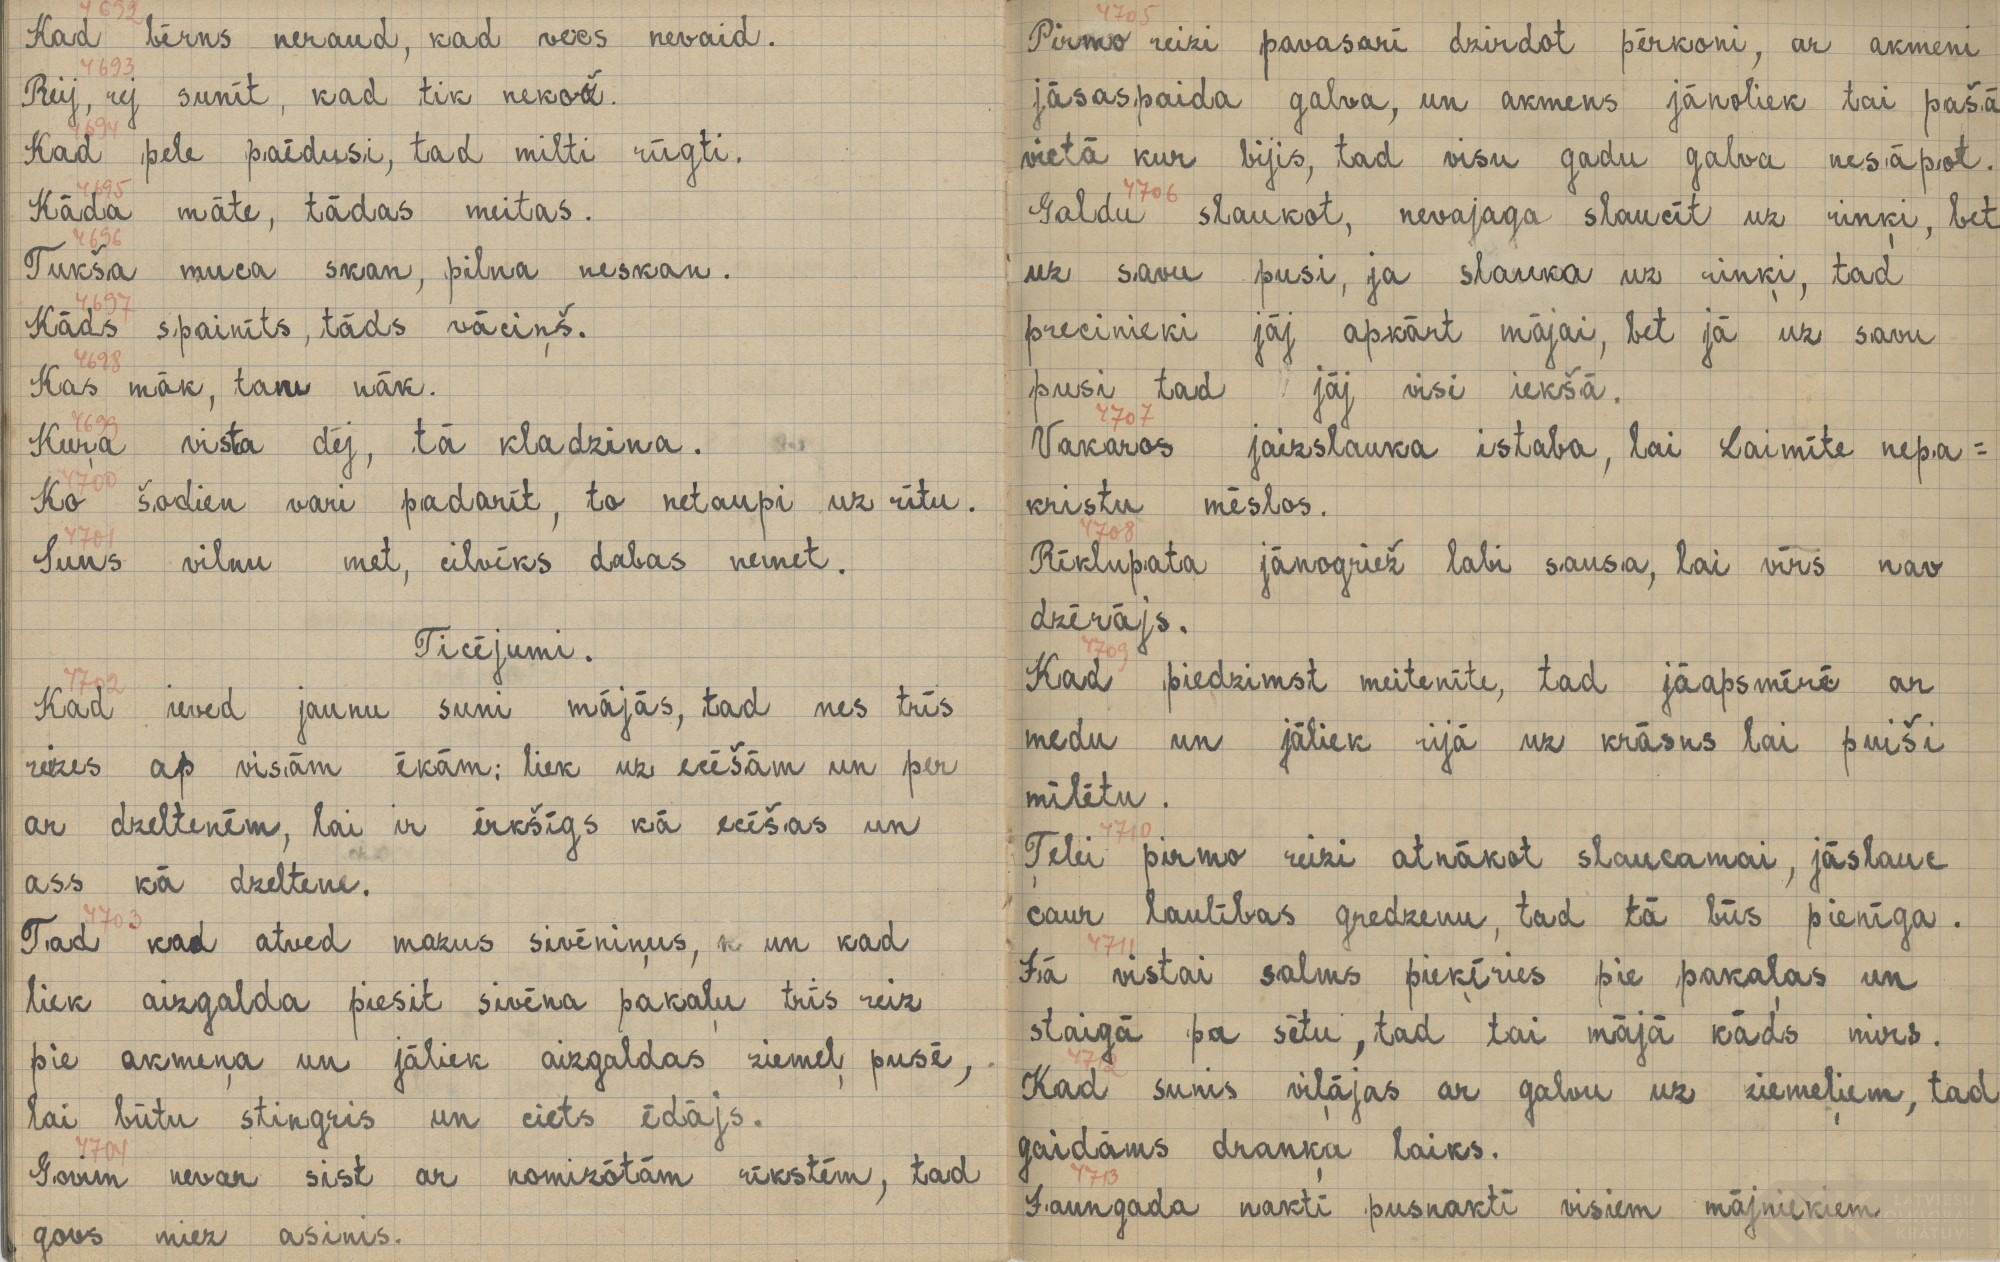 4692
Kad bērns neraud, kad vecs nevaid.
4693
Reij, rej sunīt, kad tik nekod.
4694
Kad pele paēdusi, tad milti rūgti.
4695
Kāda māte, tādas meitas.
4696
Tukša muca skan, pilna neskan.
4697
Kāds spainīts, tāds vāciņš.
4698
Kas māk, tam nāk.
4699
Kuŗa vista dēj, tā kladzina.
4700
Ko šodien vari padarīt, to netaupi uz rītu.
4701
Suns vilnu met, cilvēks dabas nemet.
Ticējumi.
4702
Kad ieved jaunu suni mājās, tad nes trīs
reizes ap visām ēkām: liek uz ecēšām un per
ar dzeltenēm, lai ir ērkšīgs kā ecēšas un
ass kā dzeltene.
4703
Tad kad atved mazus sivēniņus, un kad
liek aizgalda piesit sivēna pakaļu trīs reiz
pie akmeņa un jāliek aizgaldas ziemeļ pusē,
lai būtu stingris un ciets ēdājs.
4704
Govim nevar sist ar nomizōtām rīkstēm, tad
govs miez asinis.
4705
Pirmo reizi pavasarī dzirdot pērkoni, ar akmeni
jāsaspaida galva, un akmens jānoliek tai pašā
vietā kur bijis, tad visu gadu galva nesāpot.
4706
Galdu slaukot, nevajaga slaucīt uz riņķi, bet
uz savu pusi, ja slauka uz rinķi, tad
precinieki jāj apkārt mājai, bet jā uz savu
pusi tad jāj visi iekšā.
4707
Vakaros jaizslauka istaba, lai Laimīte nepa=
kristu mēslos.
4708
Rīklupata jānogriež labi sausa, lai vīrs nav
dzērājs.
4709
Kad piedzimst meitenīte, tad jāapsmērē ar
medu un jāliek rijā uz krāsns lai puiši
mīlētu.
4710
Ţelei pirmo reizi atnākot slaucamai, jāslauc
caur laulības gredzenu, tad tā būs pienīga.
4711
Jā vistai salms pieķēries pie pakaļas un
staigā pa sētu, tad tai mājā kāds mirs.
4712
Kad sunis viļājas ar galvu uz ziemeļiem, tad
gaidāms draņķa laiks.
4713
Jaungada naktī pusnaktī visiem mājniekiem
LATVIEŠU
FOLKLORAS
KRĀTUVE